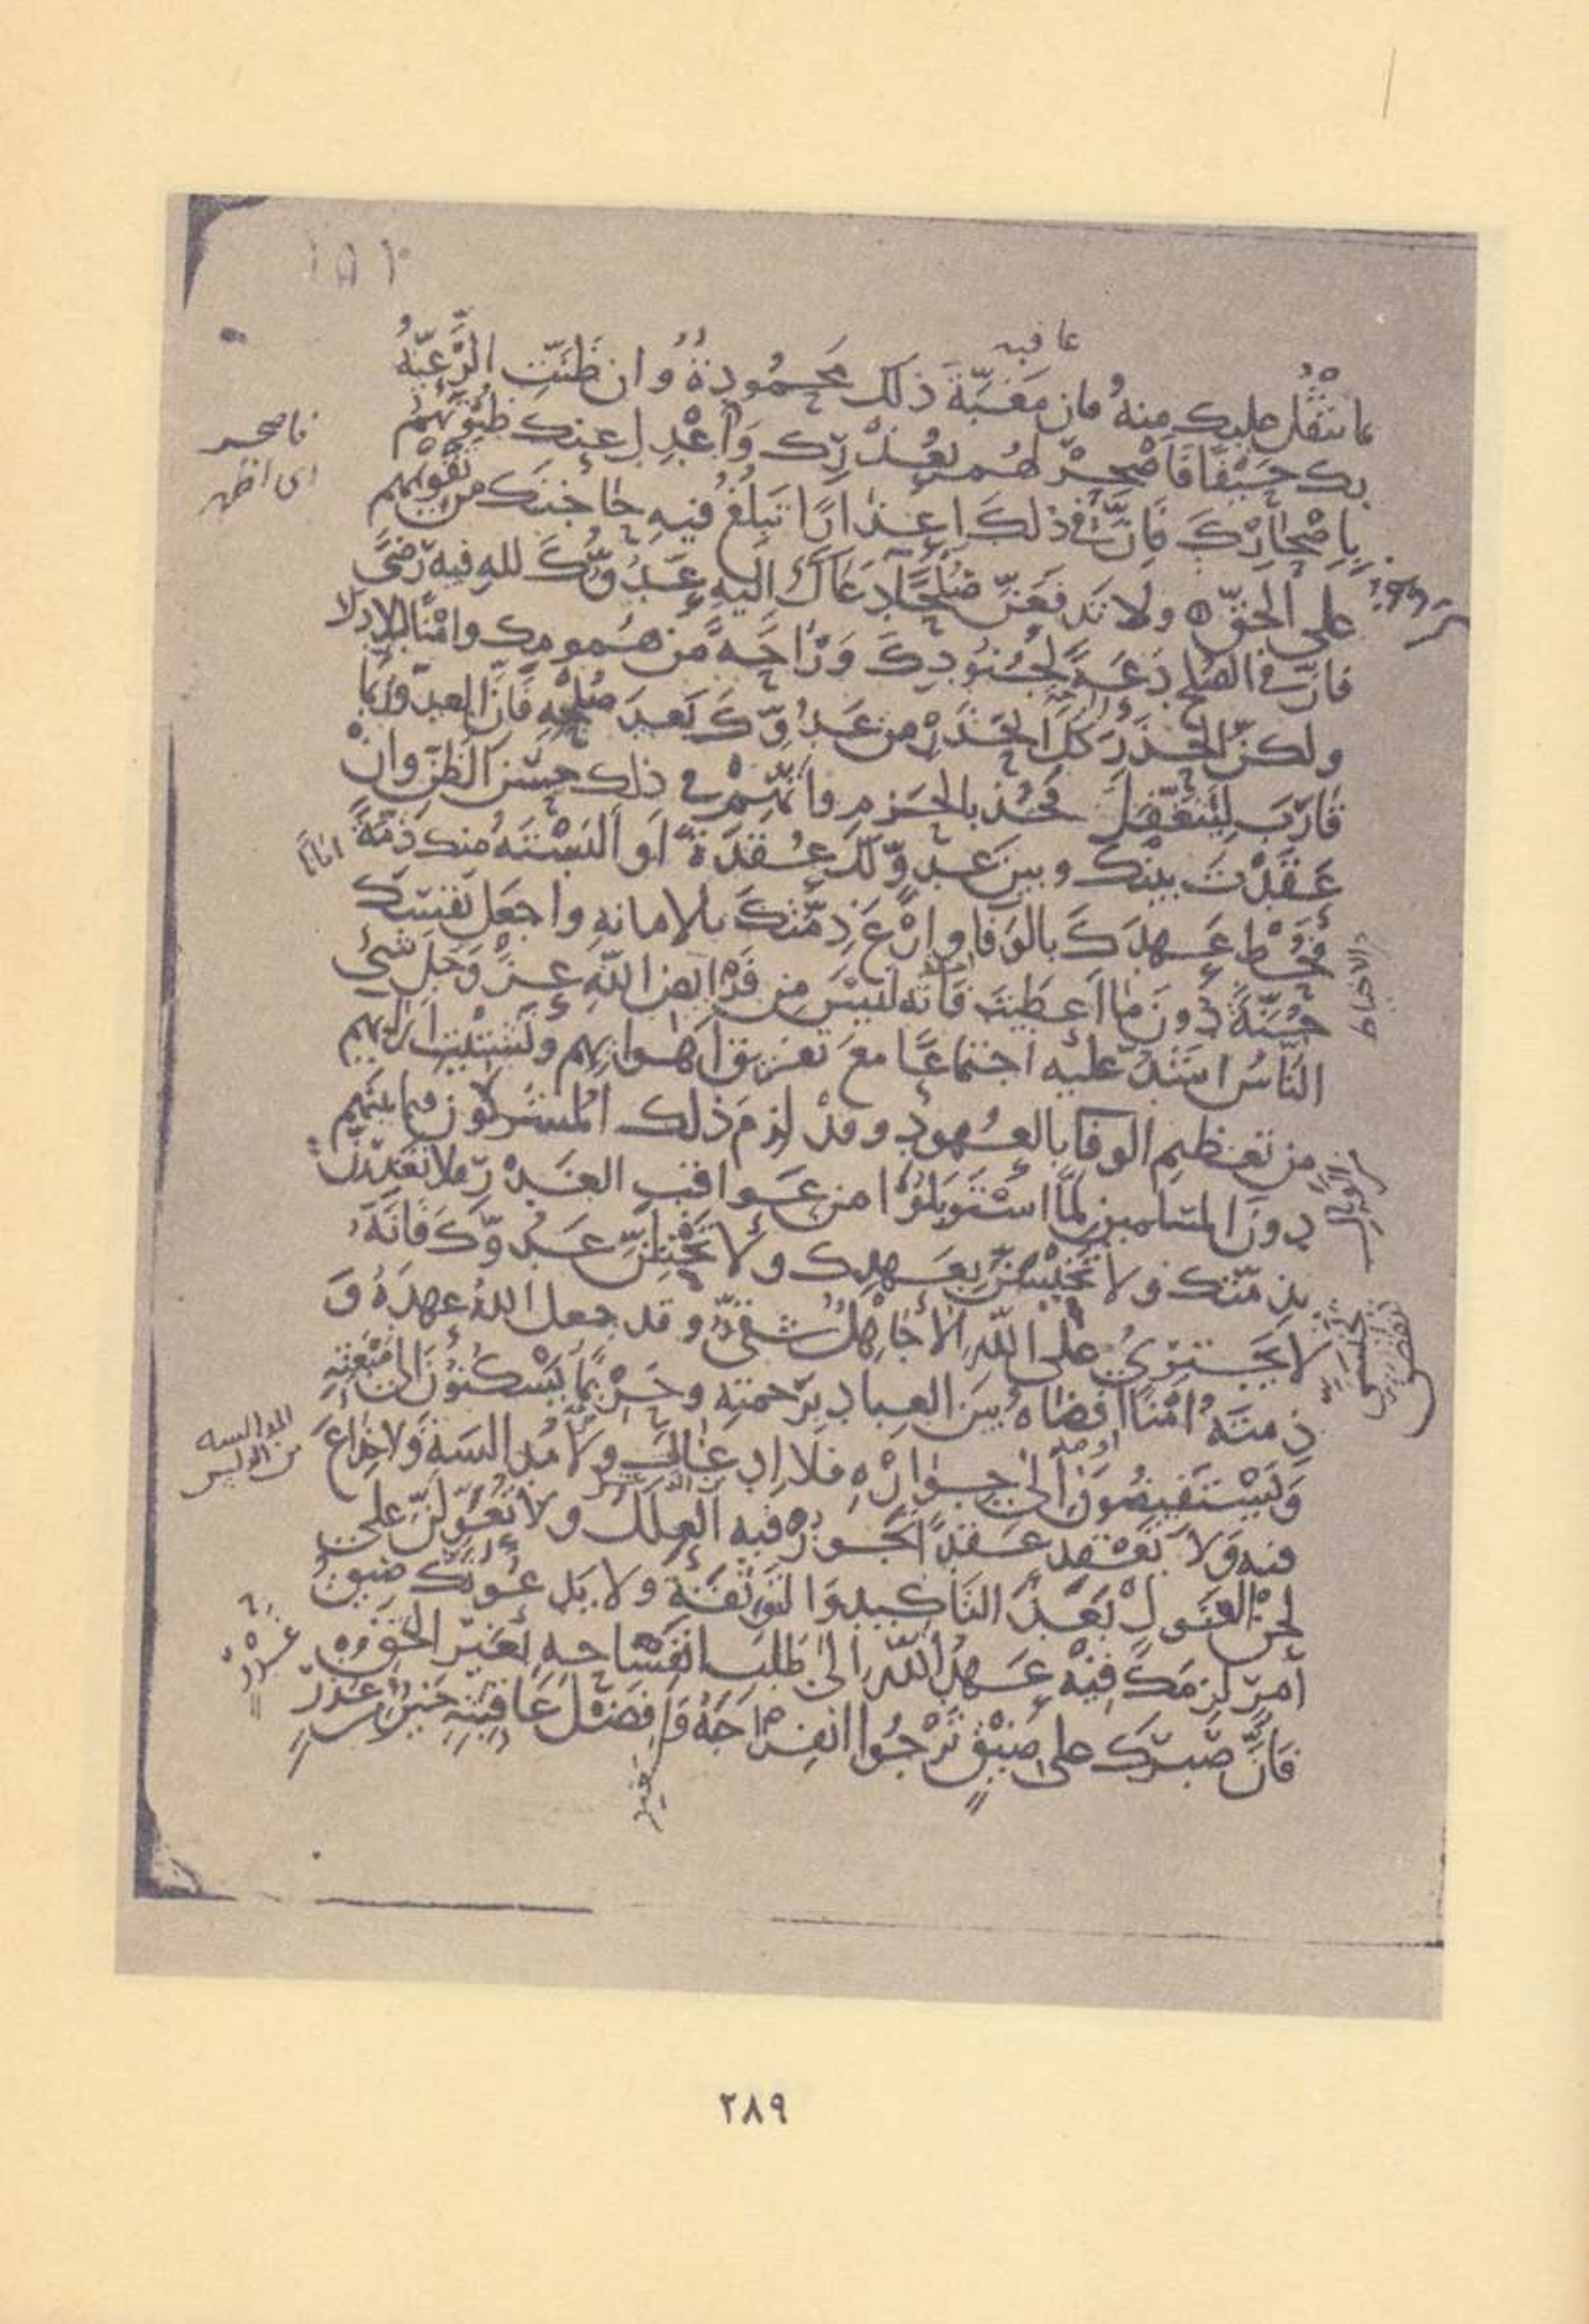 عافيه
ما يثقل عليك منه فان مَغَبَّةَ ذلك مَحمُودةٌ وان ظَنَّتِ الرَّعِيّةُ
بك حَيْفًا فَأَصْحِرْ لهُم بعُذْرِك وَاعْدِل عنك ظنُونَهُمْ
فاصحر
اى اظهر
بِإصْحَارِكَ فَإنّ فى ذلكَ إعذارًا تَبلُغُ فيهِ حَاجَتَكَ من تَقويمهم
على الحقّ ولا تَدفَعَنّ صُلحًا دَعَاكَ اليهِ عَدُوّكَ للهِ فيه رضًى
فانّ في الصُلح دَعَةً لِجُنُودِكَ وَرَاحَةً من هُمومِك وامْنًا لبلادك
ولكنِ الحَذَرَ كلَّ الحَذَرِ من عَدُوِّكَ بَعدَ صُلْحِهِ فَانّ العدوّ رُبَّما
قَارَبَ لِيَتَغَفَّلَ فخُذ بالحَزمِ واتَّهِمْ في ذلك حُسْنَ الظنِّ وانْ
عَقَدْتَ بينَك وبين عَدوٍّ لك عُقدَةً او أَلبَسْتَهُ منك ذمَّةً
امانا
فحُطْ عَهدَكَ بالوَفا وارْعَ ذِمَّتكَ بالامانهِ واجعَل نَفسَك
جُنَّةً دُونَ ما اَعطَيتَ فَانّه لَيسَ من فَرايض اللهِ عزَّ وَجَلّ شىْ
النَّاسُ اشَدُّ عليه اجتماعًا معَ تَفريق أهوايهم وتَشتيتِ ارائهم
من تعظيم الوفا بالعُهودِ وقدْ لزِمَ ذلك المشركون فيما بينهم
دونَ المسلمين لمّا استَوبَلوُا من عَواقبِ الغَدْرِ فلا تَغدِرَنّ
بذمّتك ولا تخيسَنَّ بعَهدك ولا تَختِلَنّ عَدُوّكَ فَانّهُ
لا يَجتَرِئُ على اللهِ إلّا جَاهِلٌ شقىٌّ وقد جعل اللهُ عهدَهُ وَ
ذِمتَهُ امْنًا افضَاهُ بينَ العبادِ برَحمتهِ وحَريمًا يَسْكنُونَ الى مَنْعَتِهِ
وَيَسْتَفيضُونَ الى جِوَارِهِ فلا إدغالَ ولا مُدالسَةَ ولا خِداعَ
المدالسه
من التدليس
فيه وَلا تَعْقِد عَقدًا تجُوزُ فيه العِلَلُ ولا تُعَوِّلَنّ على
لحن القول بَعدَ التاكيد وَالتَوثقَةِ ولا يَدعُوَنّكَ ضِيقُ
أمرٍ لزمَكَ فيْهِ عَهدُ اللهِ الى طَلبِ انفسَاخِهِ بغيْرِ الحقّ
فَانَّ صَبرَكَ على ضِيْقٍ تَرْجُوا انفِرَاجَهُ وَفَضْلَ عَاقِبَتِهِ خيرٌ من غدْرٍ
٢٨٩